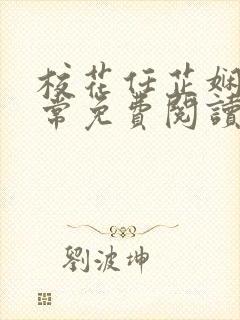 校花任芷娴
常免費閱讀
劉波坤